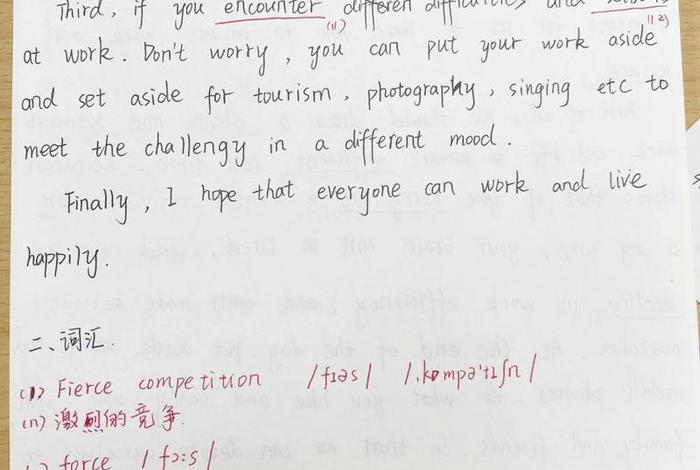 Third, if you encounter differen difficulties and
(11) (12)
at work. Don't worry, you can put your work aside
and set aside for tourism, photography, singing etc to
meet the challengy in a different mood.
Finally, I hope that everyone can work and live
happily.
二、词汇.
(1) Fierce competition /fɪəs/ /ˌkɒmpəˈtɪʃn/
(n) 激烈的竞争.
force /fɔːs/